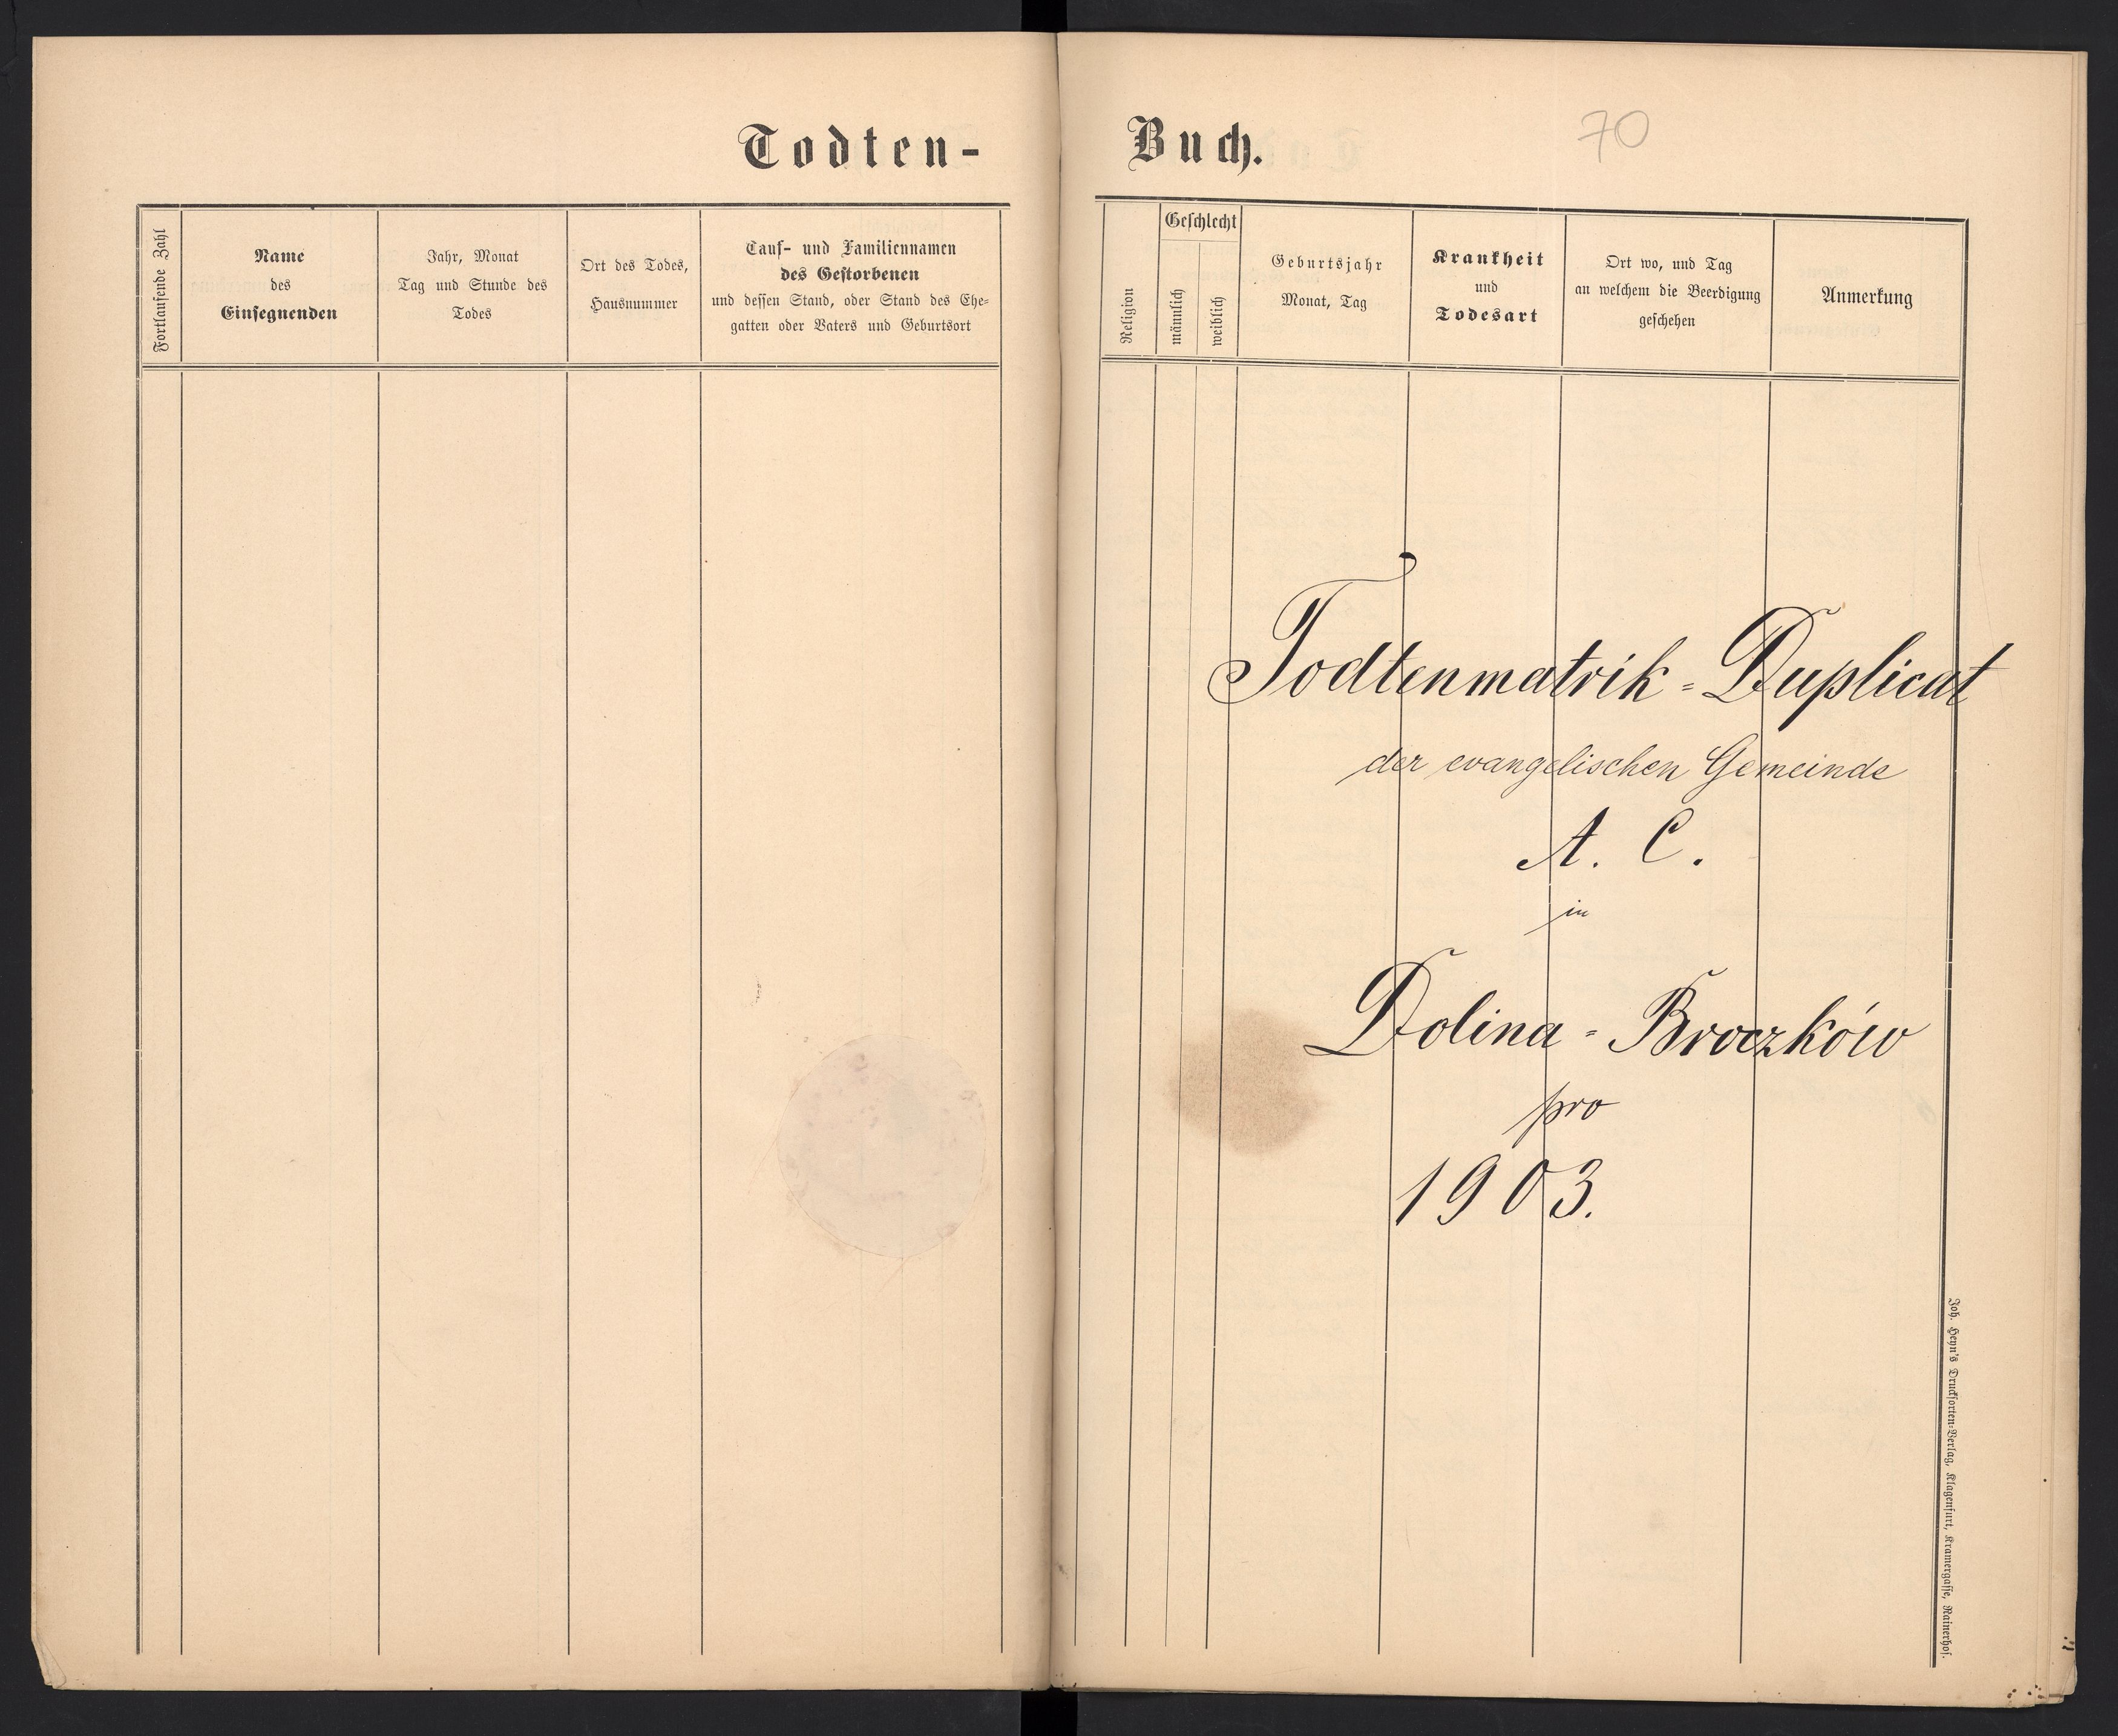 Todten-
Buch.
70
Fortlaufende Zahl
Name
des
Einsegnenden
Jahr, Monat
Tag und Stunde des
Todes
Ort des Todes,
Hausnummer
Tauf- und Familiennamen
des Gestorbenen
und dessen Stand, oder Stand des Ehe-
gatten oder Vaters und Geburtsort
Religion
Geschlecht
männlich
weiblich
Geburtsjahr
Monat, Tag
Krankheit
und
Todesart
Ort wo, und Tag
an welchem die Beerdigung
geschehen
Anmerkung
Todtenmatrik-Duplicat
der evangelischen Gemeinde
A. C.
in
Dolina-Broczków
pro
1903.
Joh. Heyn's Drucksorten-Verlag, Klagenfurt, Kramergasse, Rainerhof.